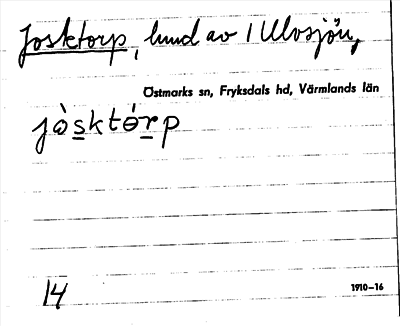 Josktorp, lund av 1 Ulvsjön,
Östmarks sn, Fryksdals hd, Värmlands län
jòsktórp
14
1910–16